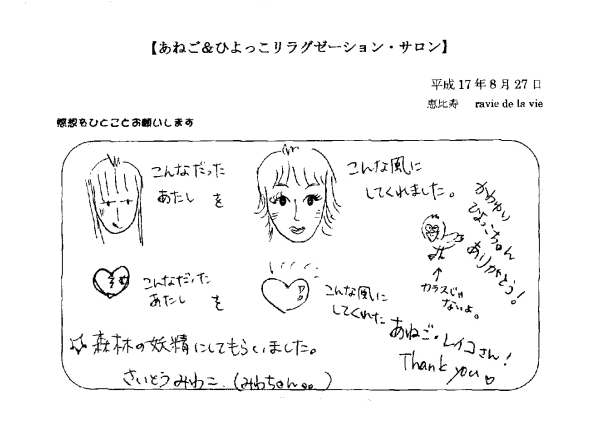 【あねご＆ひよっこリラグゼーション・サロン】
平成17年8月27日
恵比寿 ravie de la vie
感想をひとことお願いします
こんなだった
あたし を
こんな風に
してくれました。
かわゆい
ひよっこちゃん
ありがとう!
↑
カラスじゃ
ないよ。
こんなだった
あたし を
こんな風に
してくれた
あねご・レイコさん!
Thank you♡
☆森林の妖精にしてもらいました。
さいとうみわこ.(みわちゃん。。)